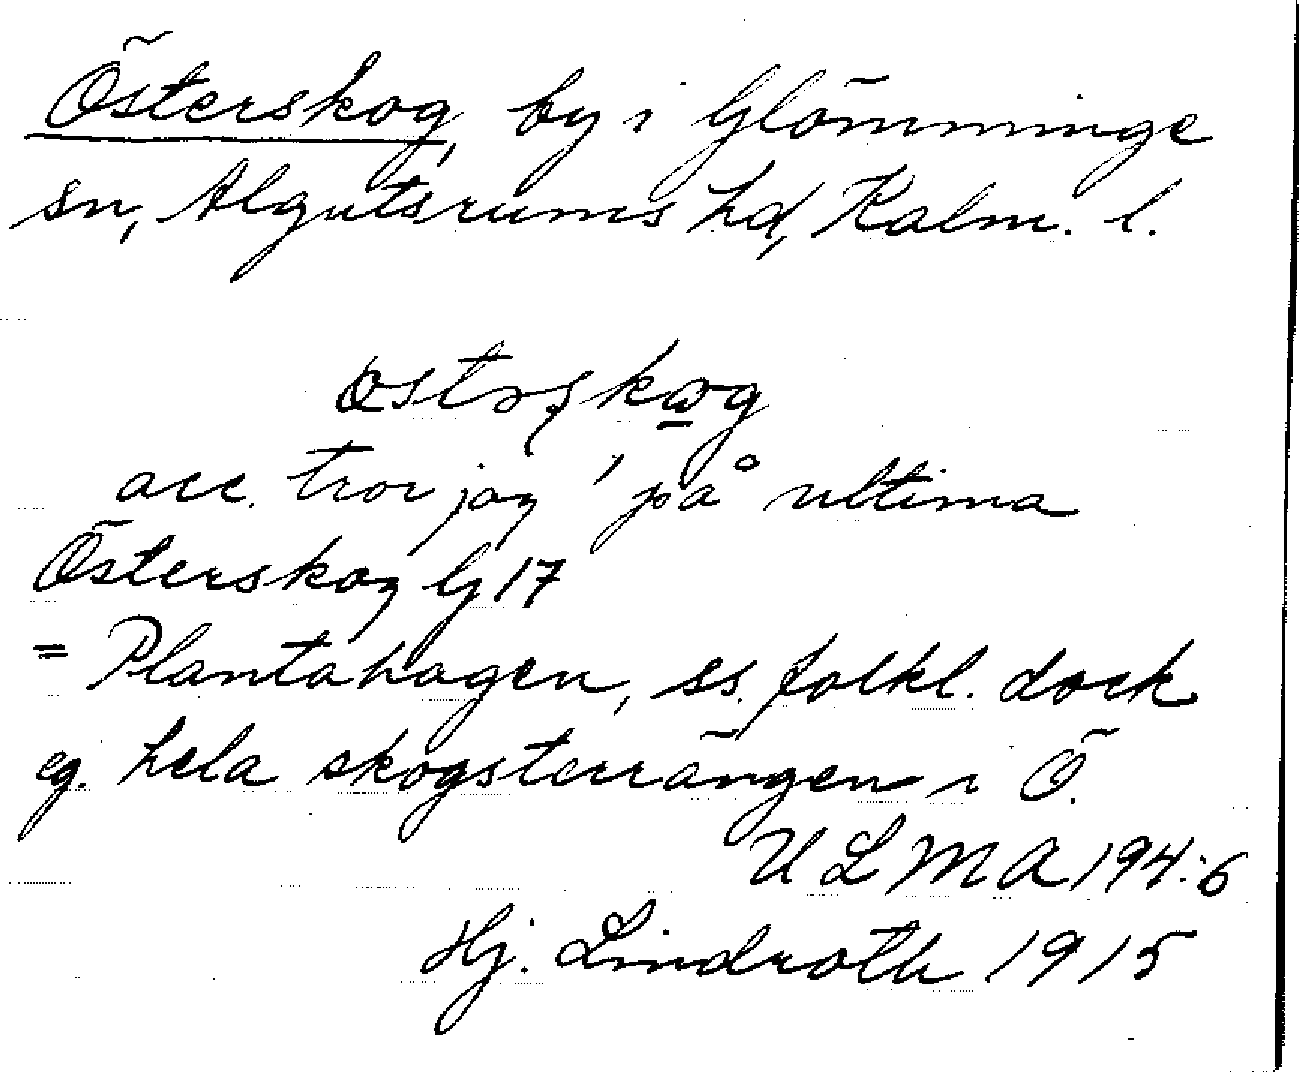 Österskog, by i Glömminge
sn, Algutsrums hd, Kalm. l.
acc. tror jag ' på ultima
Österskog G 17
= Plantahagen, ss. folkl. dock
eg. hela skogsterrängen i Ö.
ULMA 194:6
Hj. Lindroth 1915